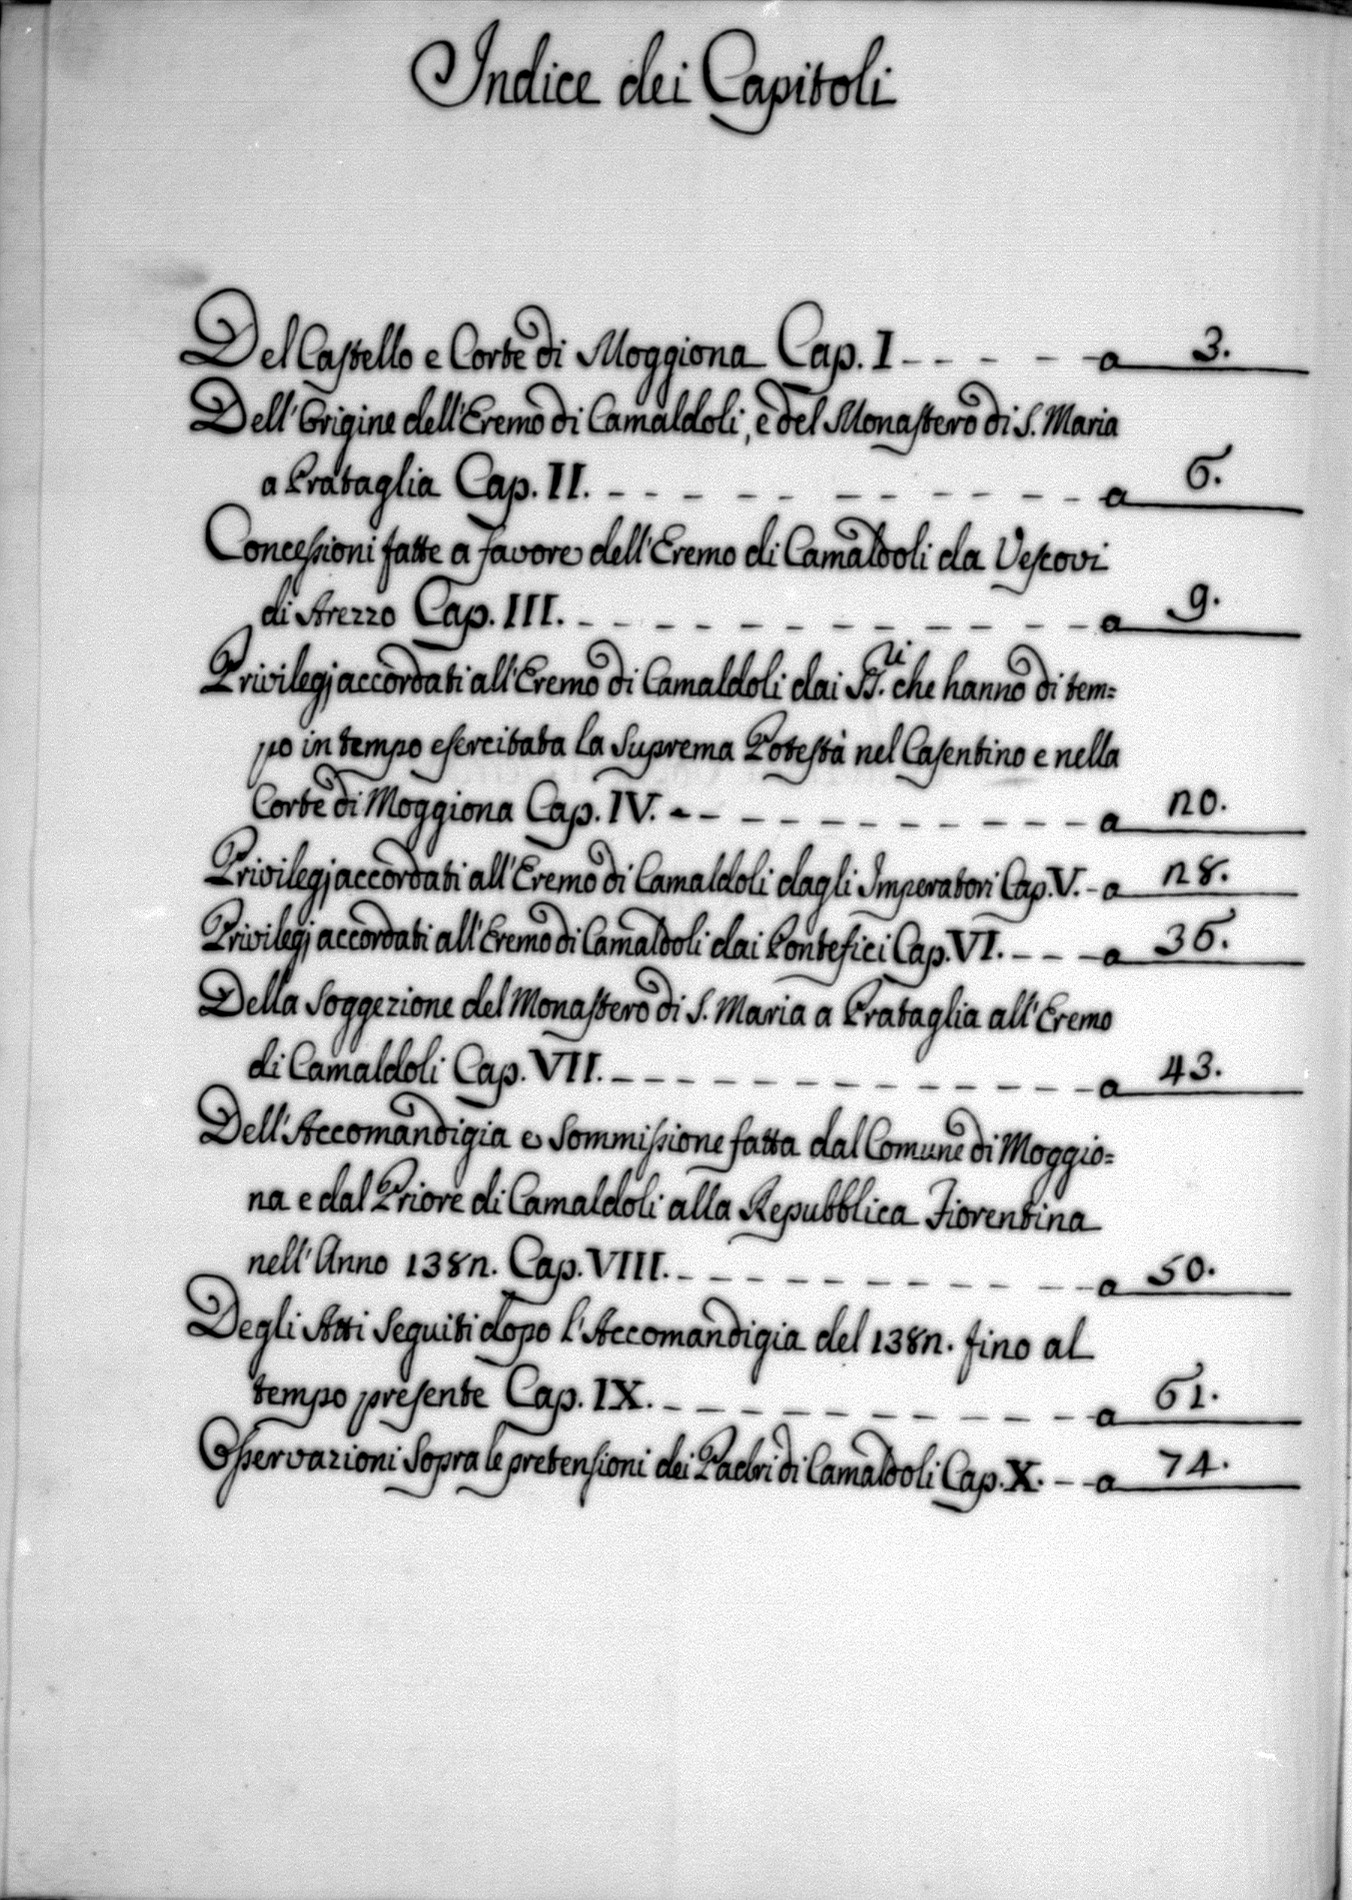 Indice dei Capitoli
Del Castello e Corte di Moggiona Cap. I - - - - - a 3.
Dell'Origine dell'Eremo di Camaldoli, e del Monastero di S. Maria
a Prataglia Cap. II. - - - - - - - - - - - - a 6.
Concessioni fatte a favore dell'Eremo di Camaldoli da Vescovi
di Arezzo Cap. III. - - - - - - - - - - - - a 9.
Privilegj accordati all'Eremo di Camaldoli dai SS.ri che hanno di tem=
po in tempo esercitata la Suprema Potestà nel Casentino e nella
Corte di Moggiona Cap. IV. - - - - - - - - - - - a 20.
Privilegj accordati all'Eremo di Camaldoli dagli Imperatori Cap. V. - a 28.
Privilegj accordati all'Eremo di Camaldoli dai Pontefici Cap. VI. - - - a 36.
Della Soggezione del Monastero di S. Maria a Prataglia all'Eremo
di Camaldoli Cap. VII. - - - - - - - - - - - - a 43.
Dell'Accomandigia e Sommissione fatta dal Comune di Moggio=
na e dal Priore di Camaldoli alla Repubblica Fiorentina
nell'Anno 1382. Cap. VIII. - - - - - - - - - - - a 50.
Degli Atti Seguiti dopo l'Accomandigia del 1382. fino al
tempo presente Cap. IX. - - - - - - - - - - - a 61.
Osservazioni Sopra le pretensioni dei Padri di Camaldoli Cap. X. - - a 74.